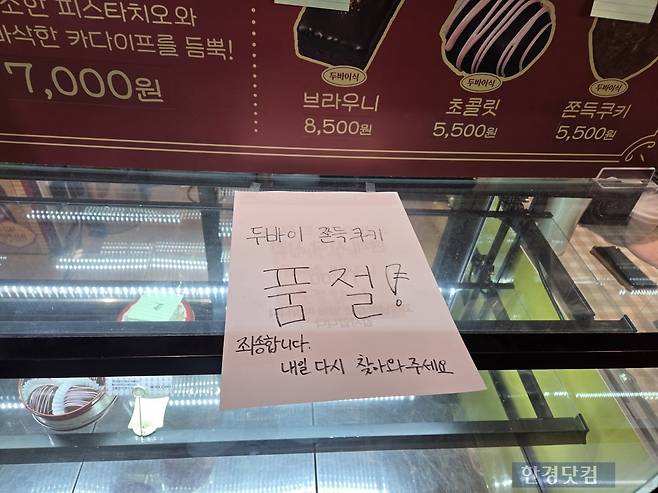 조한 피스타치오와
바삭한 카다이프를 듬뿍!
7,000원
두바이식
브라우니
8,500원
두바이식
초콜릿
5,500원
두바이식
쫀득쿠키
5,500원
두바이 쫀득쿠키
품절!
죄송합니다.
내일 다시 찾아와 주세요
한경닷컴